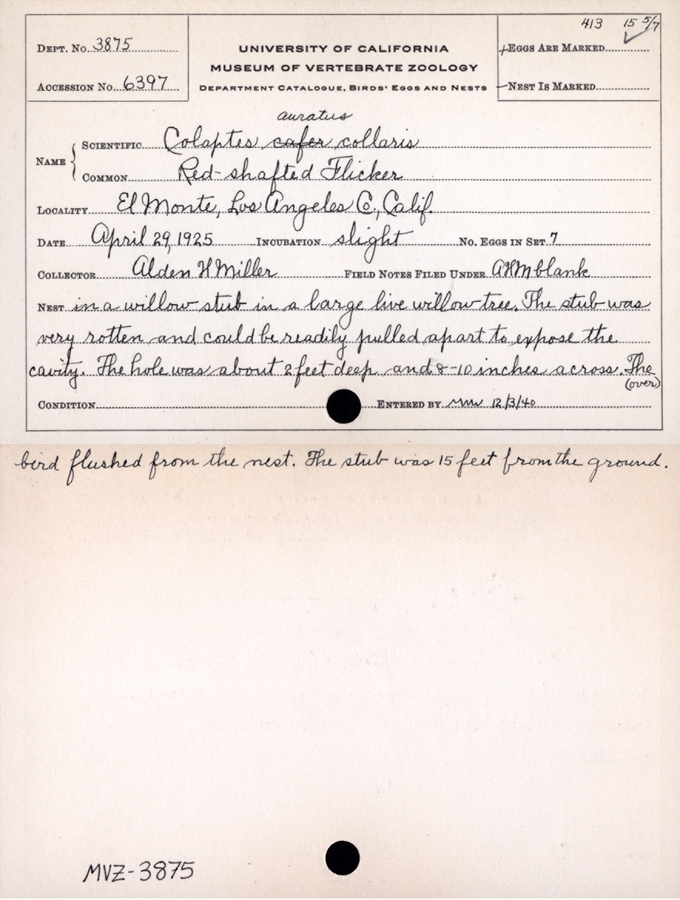 413 15 5/7
DEPT. No. 3875
UNIVERSITY OF CALIFORNIA
EGGS ARE MARKED
MUSEUM OF VERTEBRATE ZOOLOGY
ACCESSION No. 6397
DEPARTMENT CATALOGUE, BIRDS' EGGS AND NESTS
NEST IS MARKED
auratus
NAME { SCIENTIFIC Colaptes cafer collaris
COMMON Red-shafted Flicker
LOCALITY El Monte, Los Angeles Co., Calif.
DATE April 29, 1925 INCUBATION slight NO. EGGS IN SET 7
COLLECTOR Alden H Miller FIELD NOTES FILED UNDER AHM blank
NEST in a willow stub in a large live willow tree. The stub was
very rotten and could be readily pulled apart to expose the
cavity. The hole was about 2 feet deep and 8-10 inches across. The
(over)
CONDITION ENTERED BY mmw 12/3/40
bird flushed from the nest. The stub was 15 feet from the ground.
MVZ-3875